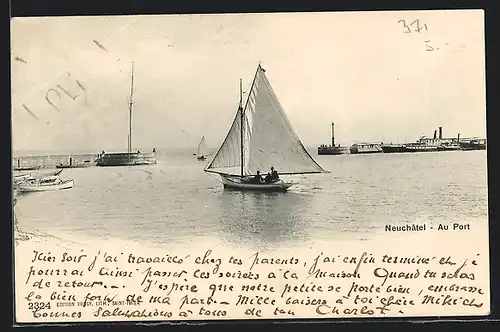 371
5.-
1 pli
Neuchâtel - Au Port
Hier Soir j'ai travaillé chez tes parents, j'ai enfin terminé et je
pourrai ainsi passer les soirées à la maison Quand tu seras
de retour. - J'espère que notre petite se porte bien, embrasse
la bien fort de ma part - Mille baisers à toi chère
bonnes Salutations à tous de ton Charlot.
2324 EDITION LITH. SAINT-IMIER